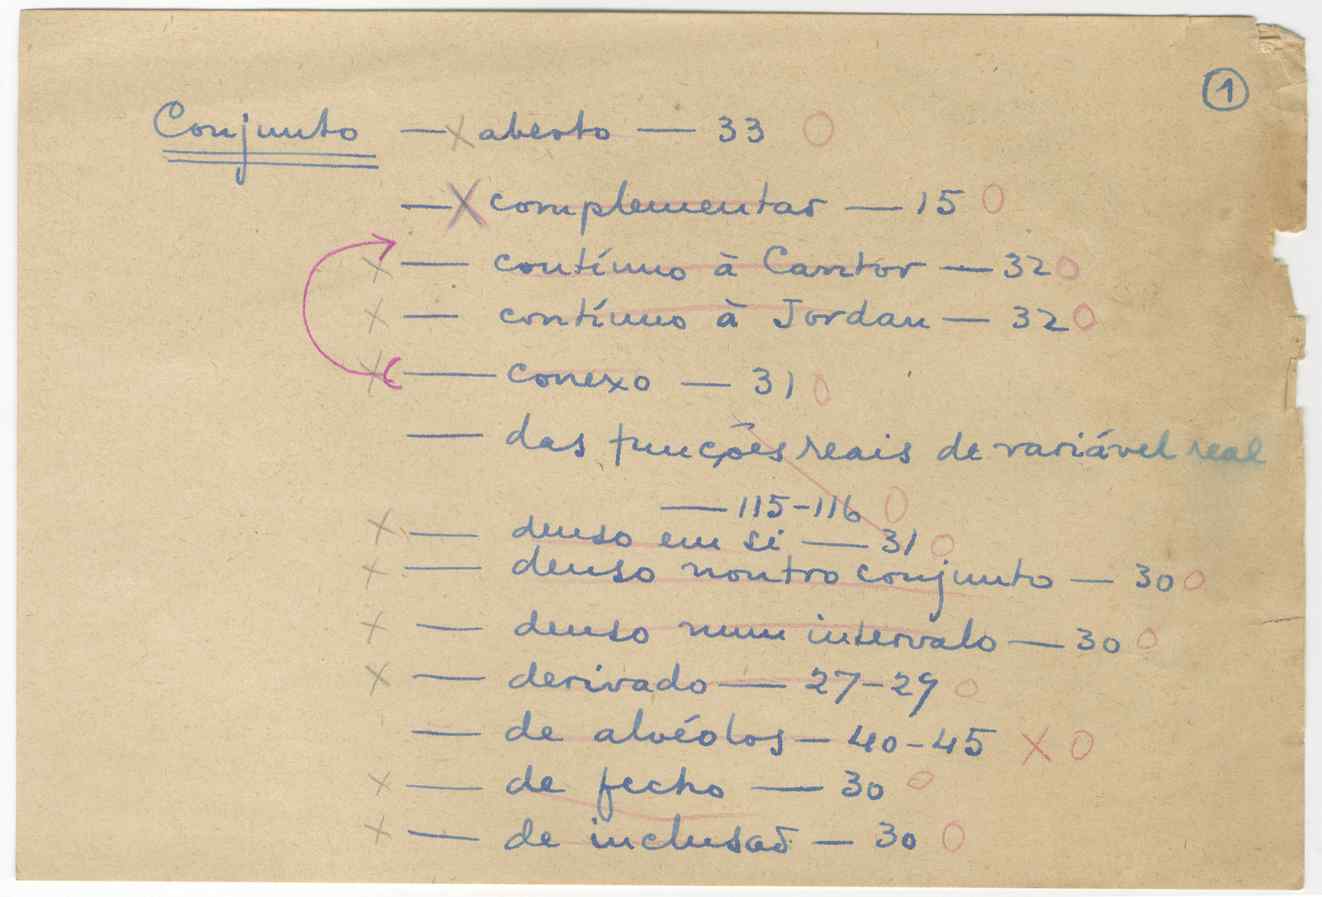 1
Conjunto — x aberto — 33 O
— X complementar — 15 O
x — contínuo à Cantor — 32 O
x — contínuo à Jordan — 32 O
x — conexo — 31 O
— das funções reais de variável real
— 115-116 O
x — denso em si — 31 O
x — denso noutro conjunto — 30 O
x — denso num intervalo — 30 O
x — derivado — 27-29 O
— de alvéolos — 40-45 X O
x — de fecho — 30 O
x — de inclusão — 30 O